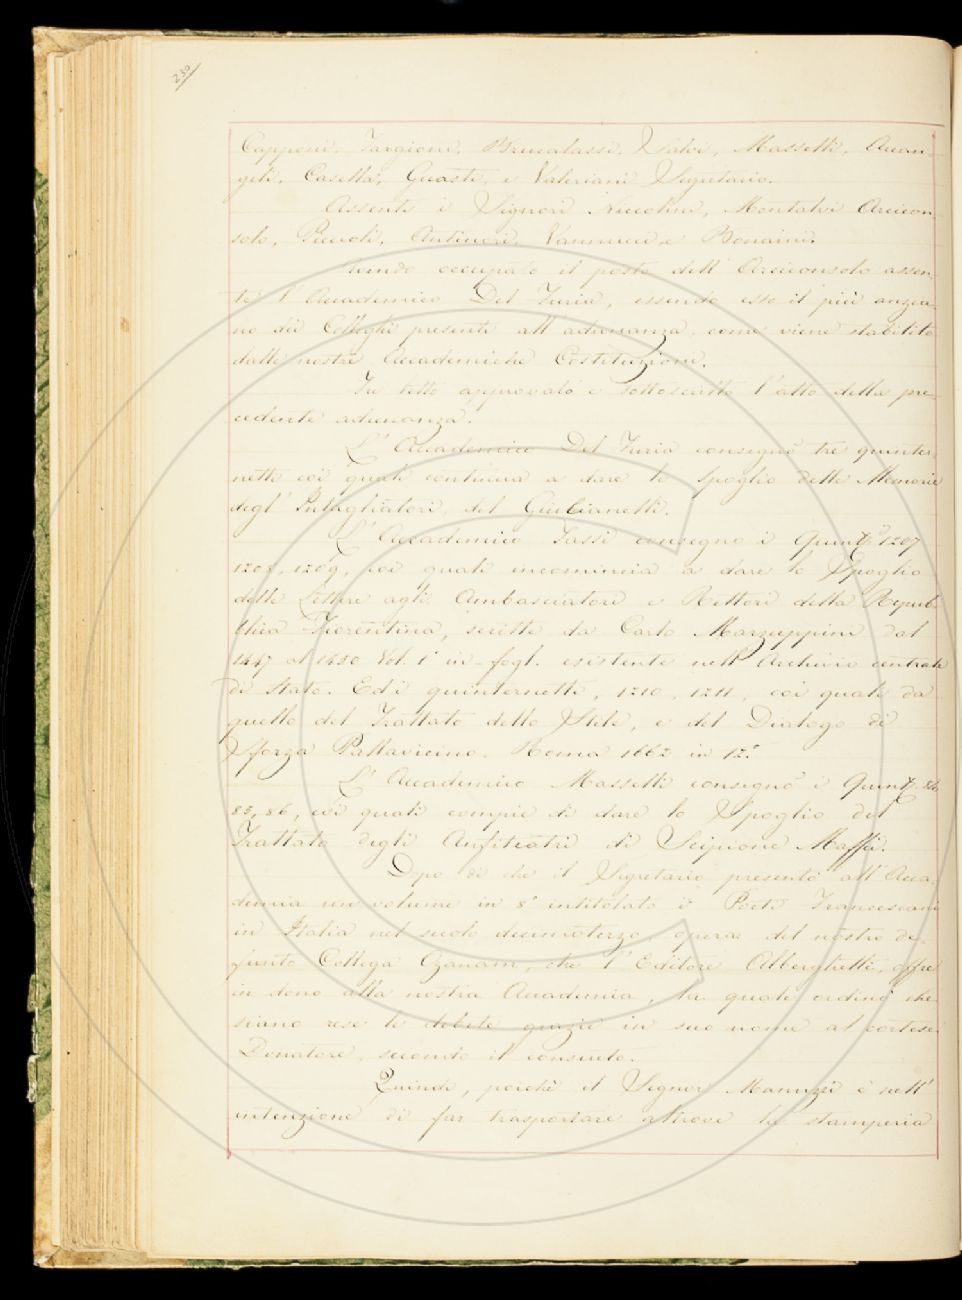 230
Capponi, Targioni, Brucalassi, Salvi, Masselli, Arcan-
geli, Casella, Guasti, e Valeriani Segretario.
Assenti i Signori Niccolini, Montalvi Arcicon-
solo, Piccoli, Antinori, Vannucci, e Bonaini.
occupato il posto dell' Arciconsolo assen-
te l'Accademico Del Furia, essendo esso il più anzia-
no dei Colleghi presenti all'adunanza, come viene stabilito
dalle nostre Accademiche Costituzioni.
Fu letto approvato e sottoscritto l'atto della pre-
cedente adunanza.
L'Accademico Del Furia consegnò tre quinter-
netti coi quali continua a dare lo spoglio delle Memorie
degl' Intagliatori, del Giulianelli.
L'Accademico Tassi consegnò i Quint.i 1207
1208, 1209, coi quali incomincia a dare lo Spoglio
delle Lettere agli Ambasciatori e Rettori della Repub-
blica Fiorentina, scritte da Carlo Marzuppini dal
1447 al 1450 Vol. 1° in fogl. esistente nell'Archivio centrale
di Stato. Ed i quinternetti, 1210, 1211, coi quali da
quello del Trattato dello Stile, e del Dialogo di
Sforza Pallavicino. Roma 1662 in 12.°
L'Accademico Masselli consegnò i Quint.i 84,
85, 86, coi quali compie di dare lo Spoglio del
Trattato degli Anfiteatri di Scipione Maffei.
Dopo di che il Segretario presentò all'Acca-
demia un volume in 8° intitolato i Poeti Francescani
in Italia nel secolo decimoterzo, opera del nostro de-
funto Collega Ozanam, che l'Editore Alberghetti, offre
in dono alla nostra Accademia, la quale ordinò che
siano rese le debite grazie in suo nome al cortese
Donatore, secondo il consueto.
Quindi, perchè il Signor Manuzzi è nell'
intenzione di far trasportare altrove la stamperia